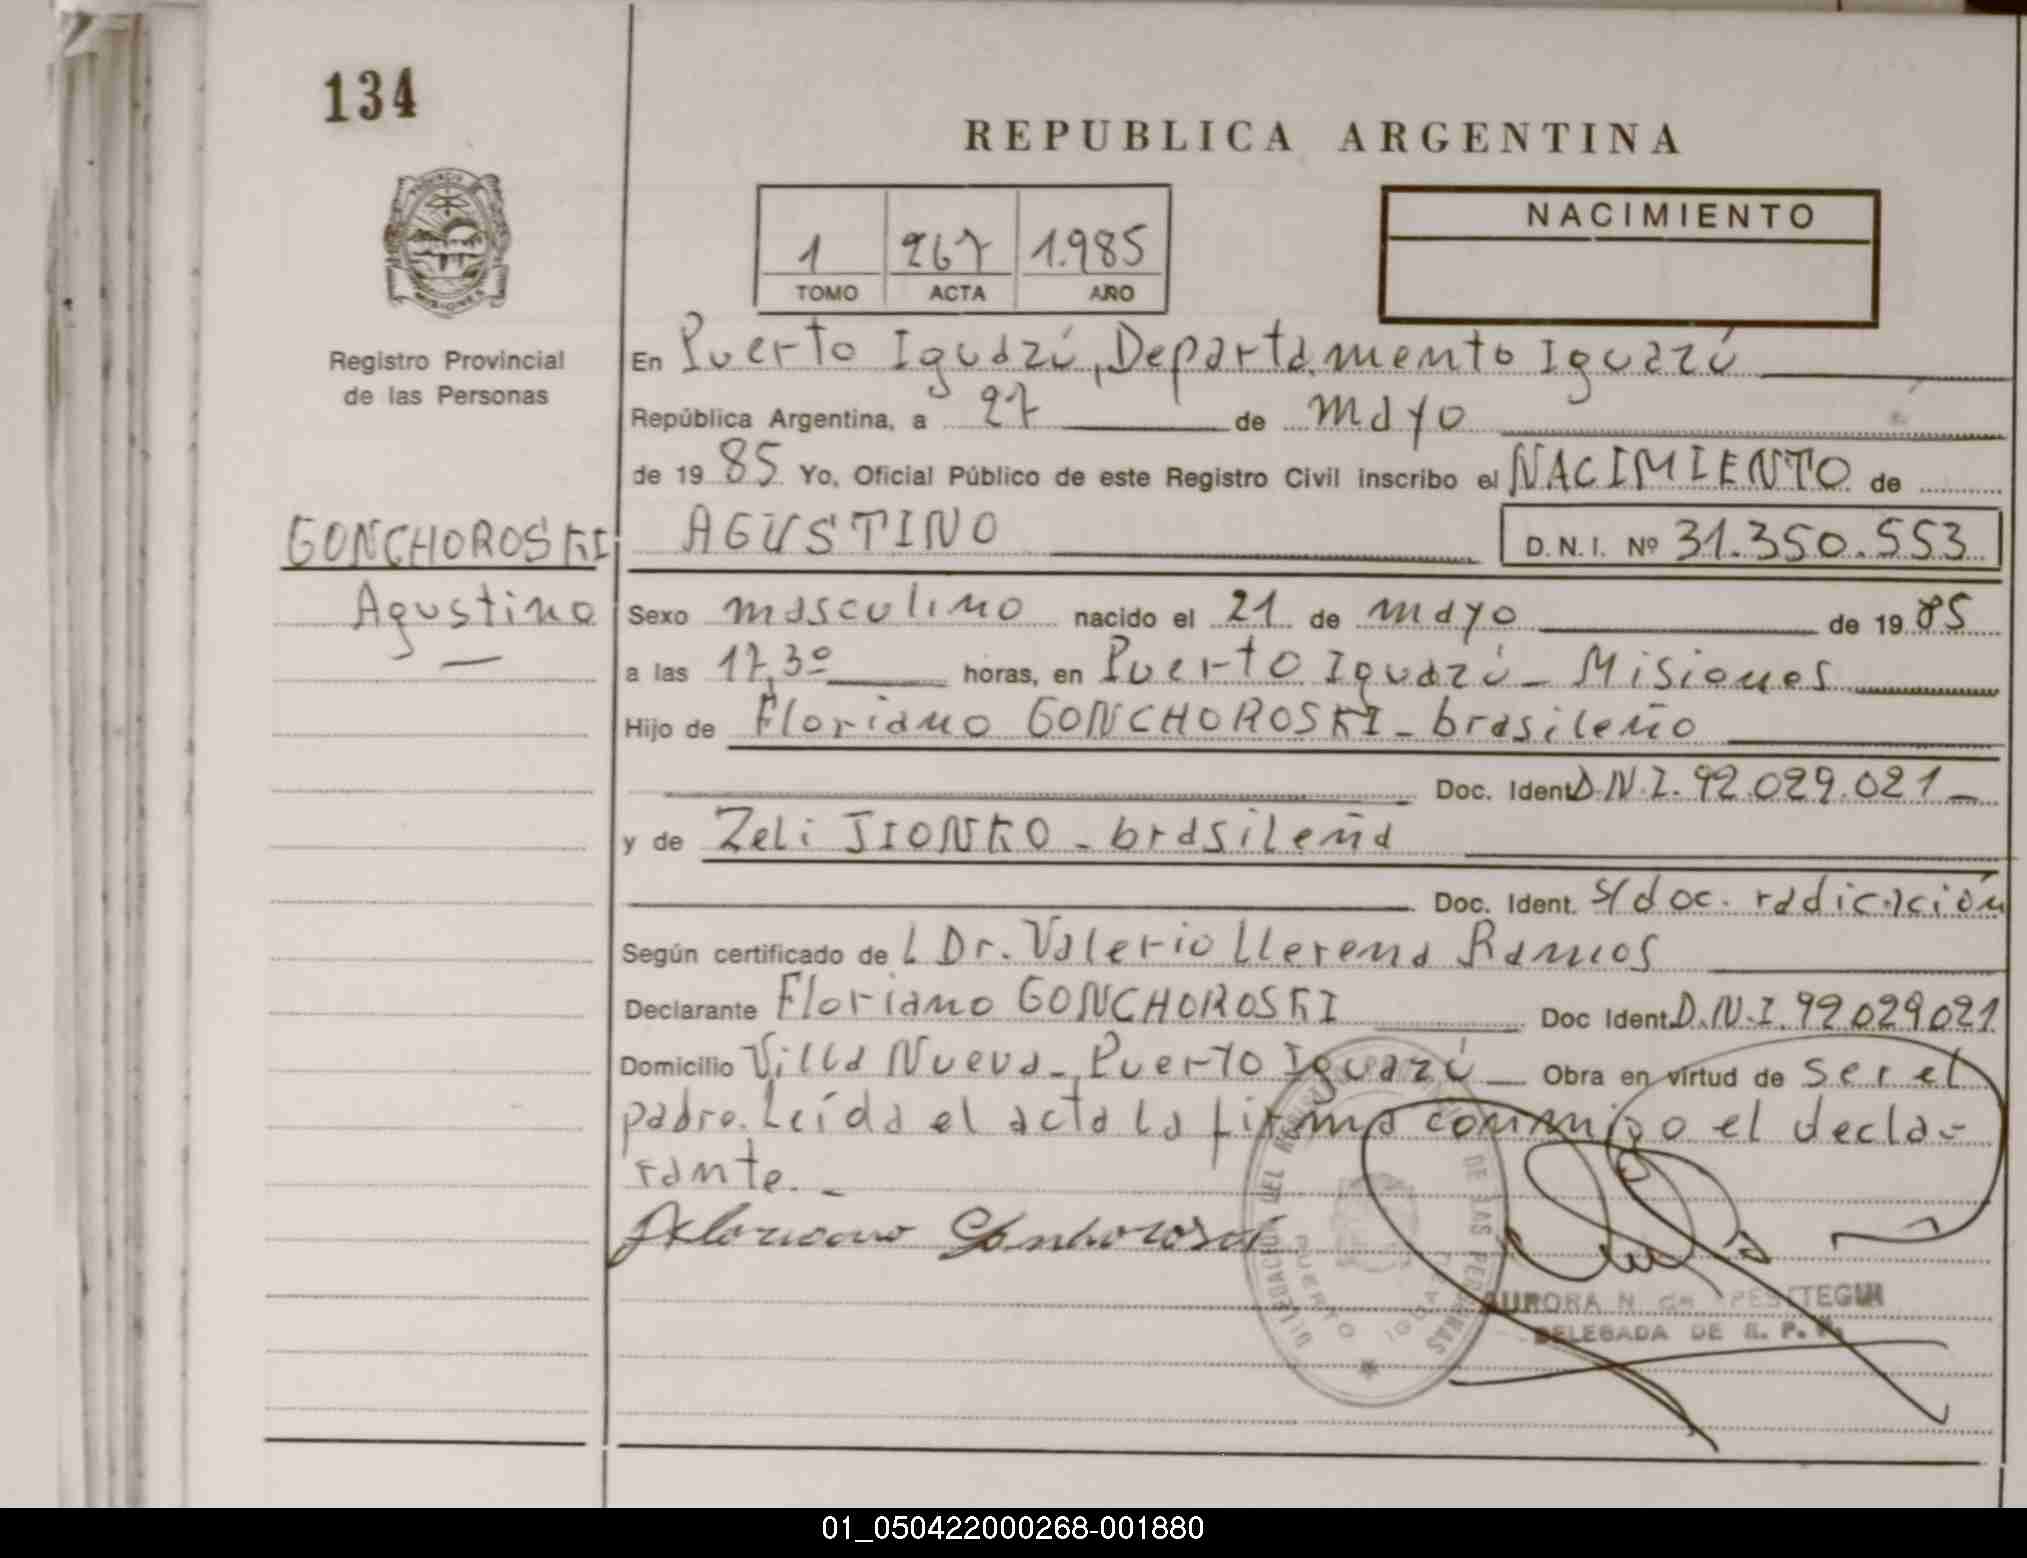 134
REPUBLICA ARGENTINA
PROVINCIA DE
MISIONES
1 267 1.985
TOMO ACTA AÑO
NACIMIENTO
Registro Provincial
de las Personas
En Puerto Iguazú, Departamento Iguazú
República Argentina, a 27 de mayo
de 19 85 Yo, Oficial Público de este Registro Civil inscribo el NACIMIENTO de
GONCHOROSKI AGUSTINO D.N.I. Nº 31.350.553
Agustino
Sexo masculino nacido el 21 de mayo de 19 85
a las 17,30 horas, en Puerto Iguazú - Misiones
Hijo de Floriano GONCHOROSKI - brasileño
Doc. Ident. D.N.I. 92.029.021 -
y de Zeli JIONKO - brasileña
Doc. Ident. s/doc. radicación
Según certificado de L Dr. Valerio Llerena Ramos
Declarante Floriano GONCHOROSKI Doc Ident. D.N.I. 92029021
Domicilio Villa Nueva - Puerto Iguazú - Obra en virtud de ser el
padre. Leída el acta la firma conmigo el decla-
rante. -
Floriano Gonchoroski
DELEGACION DEL REGISTRO DE LAS PERSONAS
PUERTO IGUAZU
AURORA N. de
DELEGADA DE R. P. P.
01_050422000268-001880